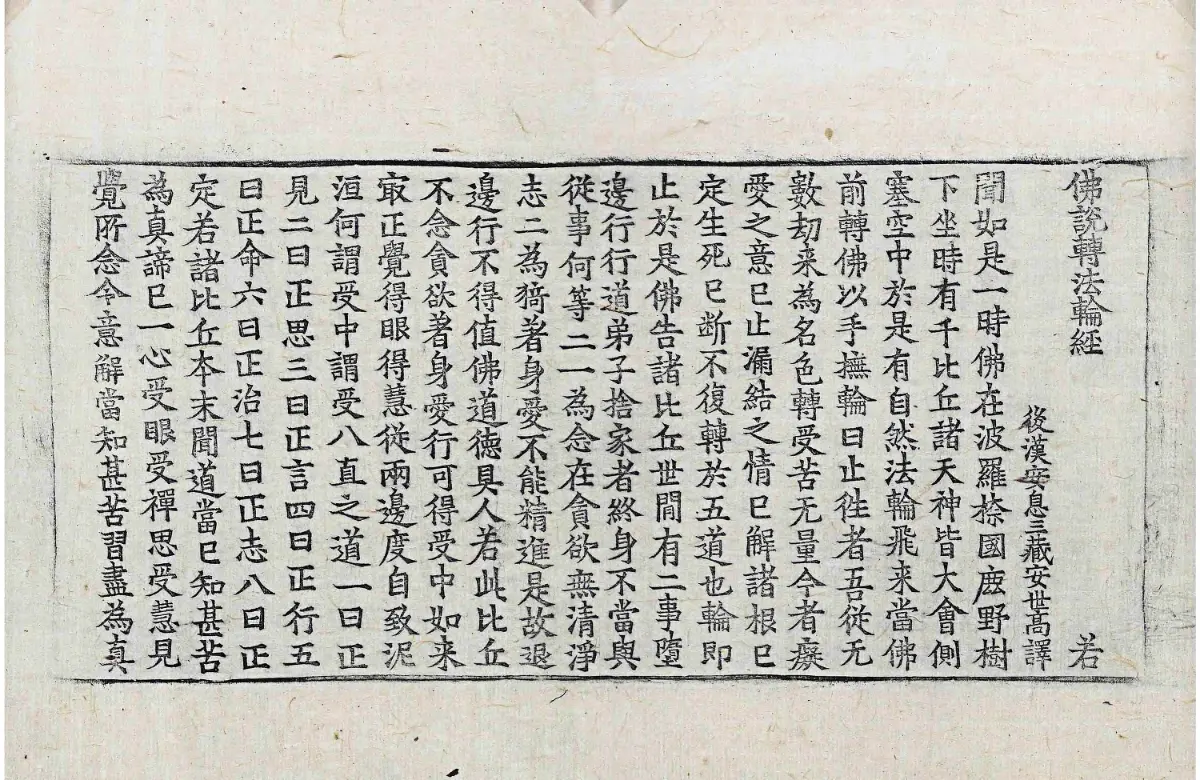 佛說轉法輪經 若
後漢安息三藏安世高譯
聞如是一時佛在波羅捺國鹿野樹
下坐時有千比丘諸天神皆大會側
塞空中於是有自然法輪飛来當佛
前轉佛以手撫輪曰止徃者吾從无
數劫来為名色轉受苦无量今者癡
愛之意已止漏結之情已解諸根已
定生死已断不復轉於五道也輪即
止於是佛告諸比丘世閒有二事墮
邊行行道弟子捨家者終身不當與
從事何等二一為念在貪欲無清淨
志二為猗著身愛不能精進是故退
邊行不得值佛道德具人若此比丘
不念貪欲著身愛行可得受中如来
冣正覺得眼得慧從兩邊度自致泥
洹何謂受中謂受八直之道一曰正
見二曰正思三曰正言四曰正行五
曰正命六曰正治七曰正志八曰正
定若諸比丘本末聞道當已知甚苦
為真諦已一心受眼受禪思受慧見
覺所念令意解當知甚苦習盡為真